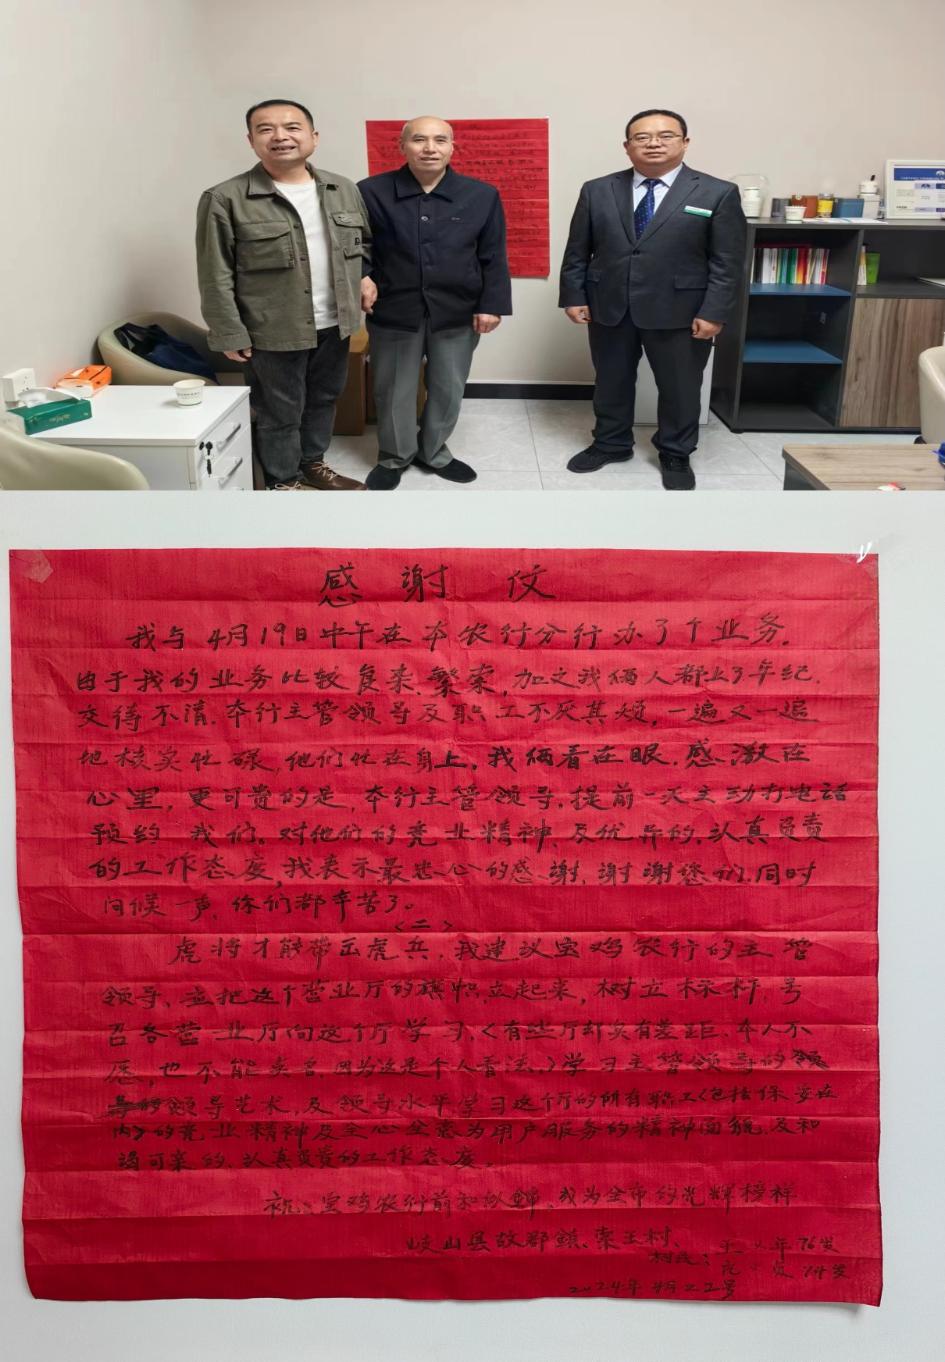 感谢仪
我与4月19日中午在本农行分行办了个业务.
由于我的业务比较复杂.繁索,加之我俩人都上了年纪.
交待不清.本行主管领导及职工不厌其烦,一遍又一遍
地核实忙碌,他们忙在身上,我俩看在眼.感激在
心里,更可贵的是,本行主管领导,提前一天主动打电话
预约我们.对他们的竞业精神.及优异的.认真负责
的工作态度,我表示最忠心的感谢.谢谢您们.同时
问候一声,你们都辛苦了。
<二>
虎将才能带出虎兵.我建议宝鸡农行的主管
领导、应把这个营业厅的旗帜立起来,树立标杆,号
召各营业厅向这个厅学习<有些厅却实有差距.本人不
愿,也不能点名.因为这是个人看法,>学习主管领导的
领导艺术,及领导水平学习这个厅的所有职工<包括保安在
内>的竞业精神及全心全意为用户服务的精神面貌.及和
谒可亲的、认真负责的工作态度。
祝:宝鸡农行前和似锦.成为全市的光辉榜样
岐山县故郡镇、索王村、
年76岁
2024年4月22号